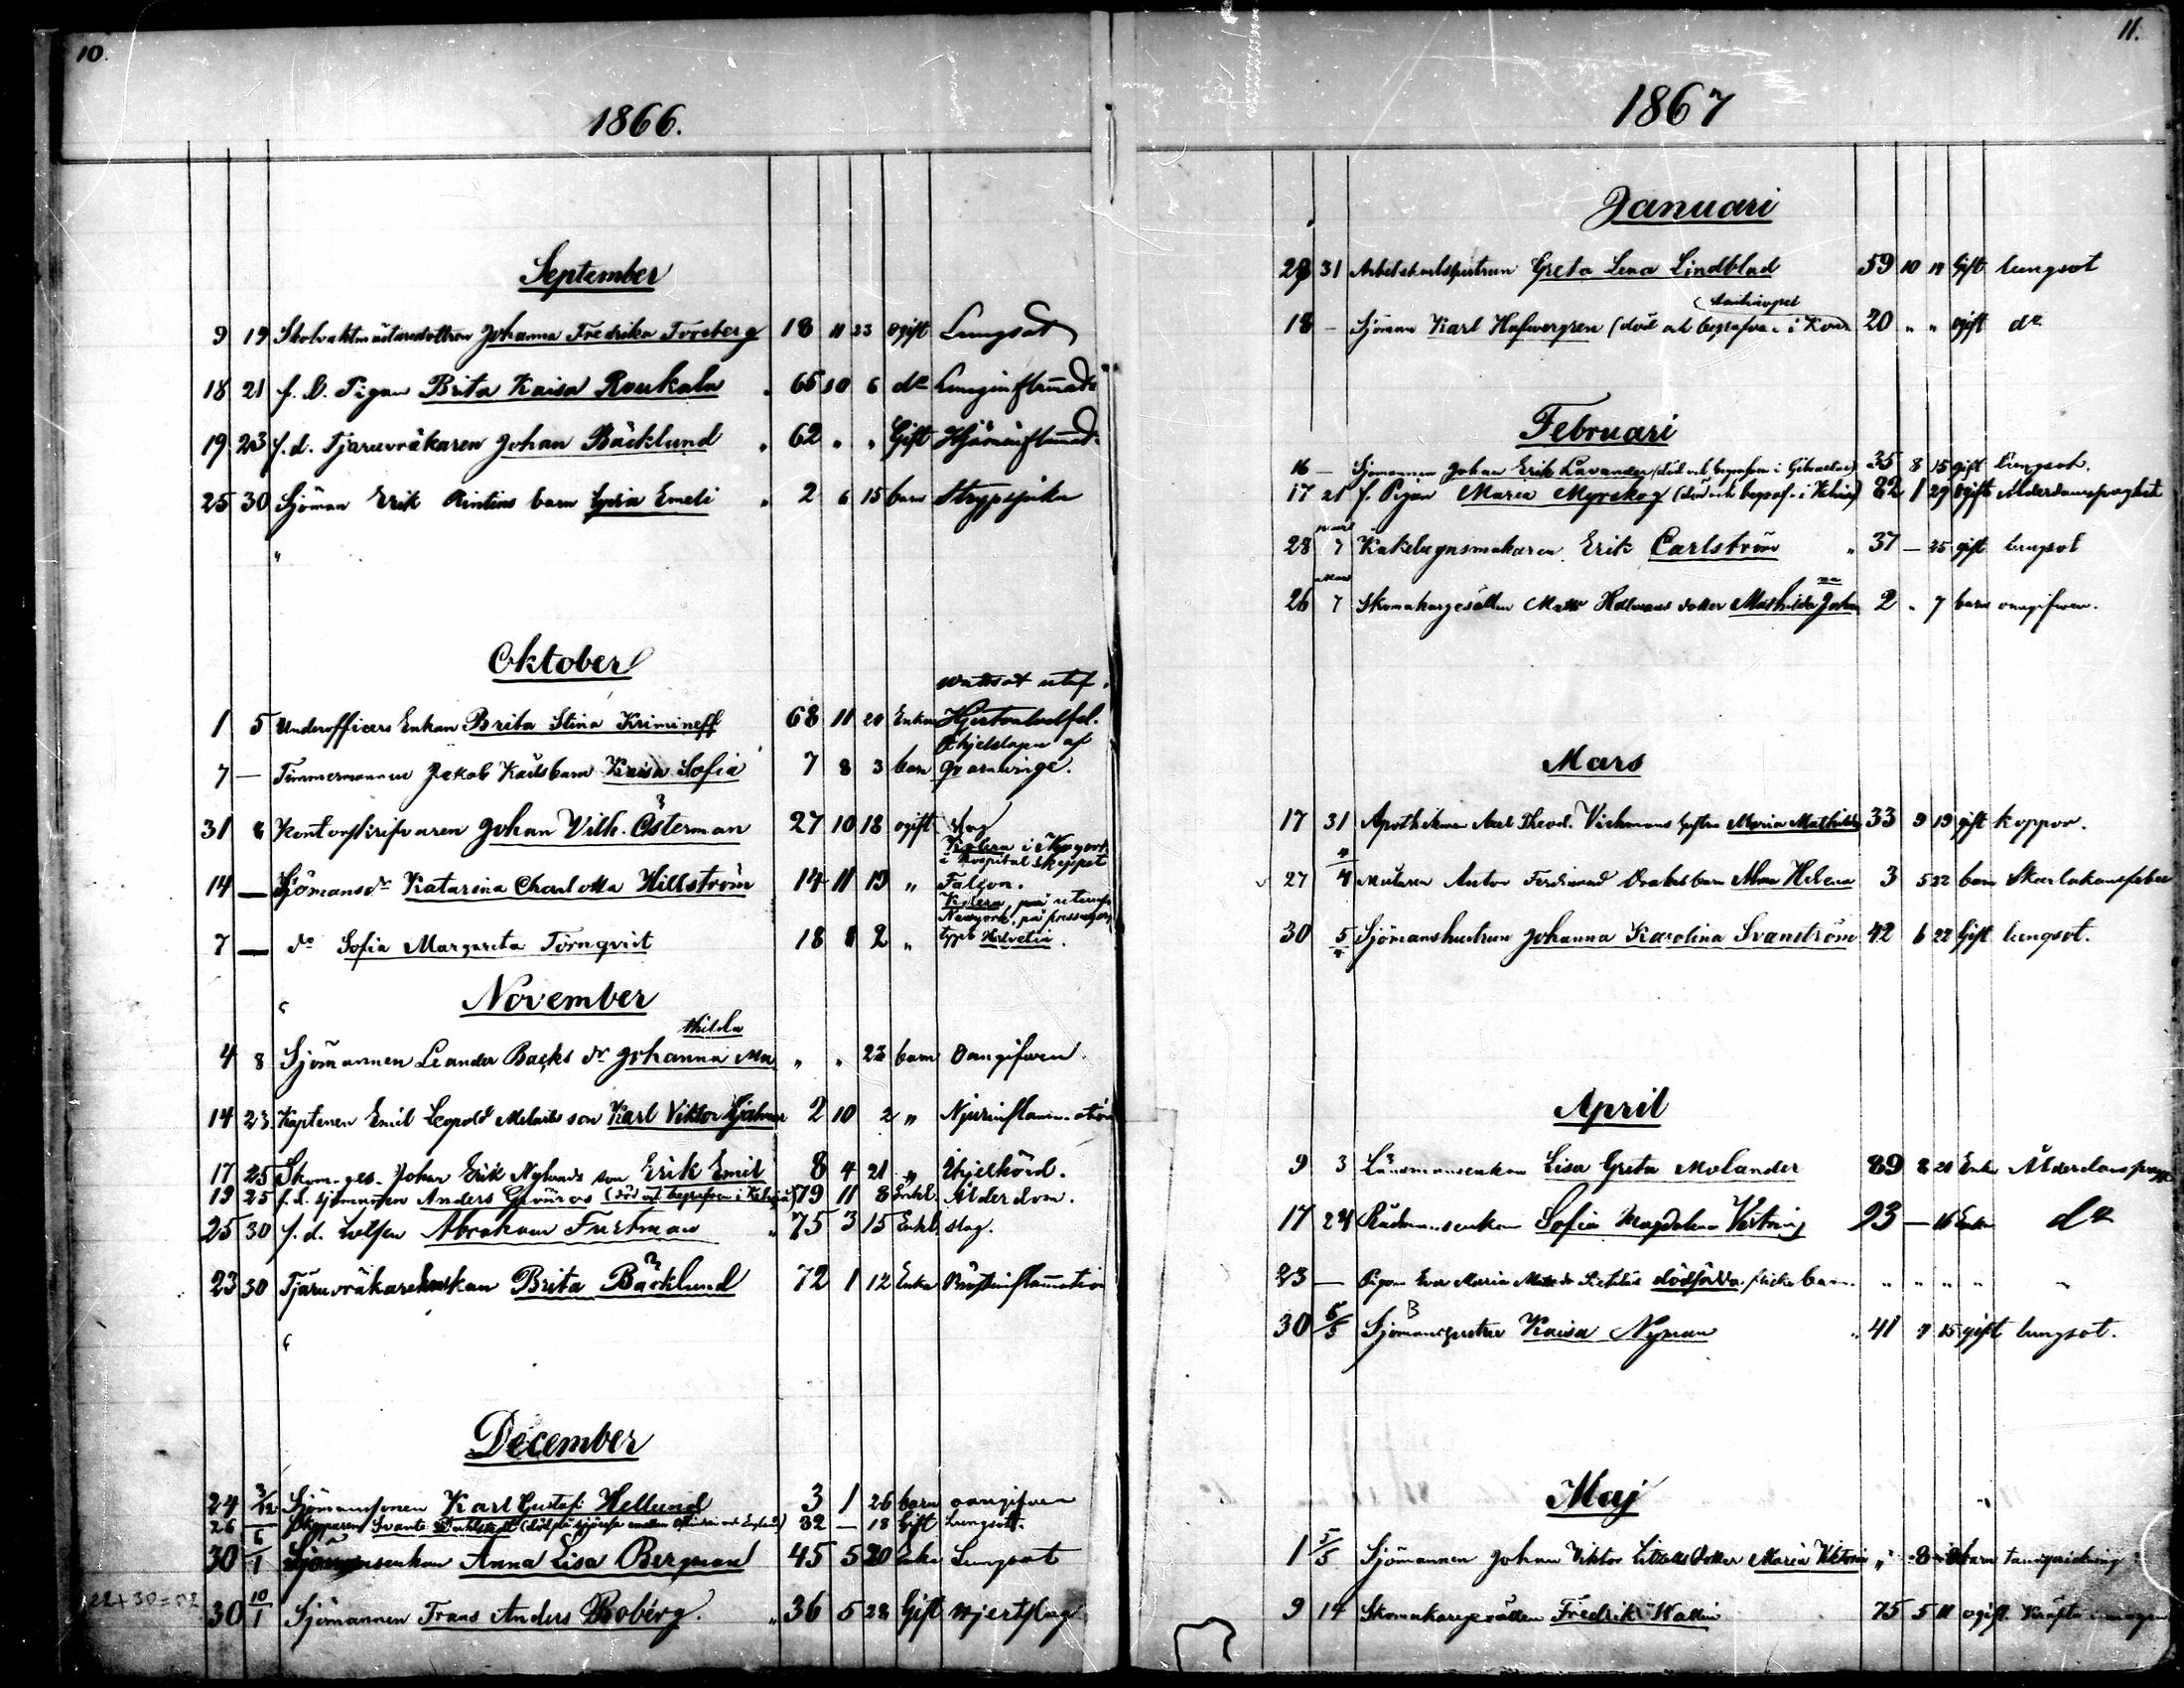 10.
1866.
September
9 19 Skolvaktmästaredottren Johanna Fredrika Forsberg 18 11 23 ogift Lungsot
18 21 f. d. Pigan Brita Kaisa Roukala 65 10 6 do Lunginflamat.
19 23 f. d. Tjäruvräkaren Johan Bäcklund " 62 " " Gift Hjärninflamat.
25 30 Sjöman Erik barn Emeli " 2 6 15 barn Strypsjuka
"
Oktober
wattsot utaf
1 5 Underofficers Enkan Brita Stina Krimineff 68 11 20 Enka Hjertoatelfel.
Ihjelslagen af
7 — Timmermannen Jakob Kails barn Kaisa Sofia 7 8 3 barn qvarnvinge.
31 8 Kontorsskrifvaren Johan Vilh. Österman 27 10 18 ogift slag
Kolera i Newyork
i hospital skeppet
14 — Sjömansdr Katarina Charlotta Hillström 14 11 19 " Falcon.
Kolera, på utresa
Newyork, på
7 — do Sofia Margareta Törnqvist 18 8 2 " Helvetia.
November
thilda
4 8 Sjömannen Leander Backs dr Johanna Ma " " 23 barn Oangifven
14 23 Kaptenen Emil Leopold son Karl Viktor Hjalmar 2 10 2 " Njurinflammation
17 25 Skom. ges. Johan Erik Nylunds son Erik Emil 8 4 21 " Ihjelkörd.
19 25 f. d. sjömannen Anders (död och begrafven i 79 11 8 Enkl. Ålderdom.
25 30 f. d. Lotsen Abraham " 75 3 15 Enkl. slag.
23 30 Tjäruvräkareenkan Brita Bäcklund 72 1 12 Enka Bröstinflamation
December
24 3/12 Sjömanssonen Karl Gustaf Hellund 3 1 26 barn oangifven
26 — Skepparen Svante Dahlstedt (död på sjöresa emellan och England) 32 — 18 Gift Lungsot.
30 6/1 Sjömansenkan Anna Lisa Bergman 45 5 20 Enka Lungsot
22+30=52
30 10/1 Sjömannen Frans Anders Boberg. " 36 5 22 Gift Hjertslag
11.
1867
Januari
29 31 Arbetskarlshustrun Greta Lena Lindblad 59 10 19 Gift lungsot
stantinopel
18 — Sjöman Karl Hafvergren (död och begrafven i Kon 20 " " ogift do
Februari
16 — Sjömannen Johan Erik Lavander (död och begrafven i Gibraltar) 35 8 15 gift Lungsot.
17 21 f. Pigan Maria Myrskog (död och begraf. i 82 1 29 ogift Ålderdomsbräcklighet
mars
28 7 Kakelugnsmakaren Erik Carlström " 37 — 25 gift lungsot
Mars na
26 7 Skomakargesällen Matts Holmans dotter Mathilda Johan 2 " 7 barn oangifven.
Mars
17 31 Apothekaren Axel Theod. Vichmans hustru Maria Mathilda 33 9 19 gift koppor.
27 4/4 Målaren Anton Ferdinand barn Alma Helena 3 5 22 barn Skarlakansfeber
30 5/4 Sjömanshustrun Johanna Karolina Svanström 42 6 22 Gift lungsot.
April
9 3 Länsmansenkan Lisa Greta Molander 89 8 20 Enka
17 24 Rådmansenkan Sofia Magdalena 93 — 16 Enka do
23 — Pigan Eva Maria dödfödda flickebarn. " " " " "
30 5/5 Sjömanshustru Kaisa Nyman " 41 7 15 gift lungsot.
Maj
1 5/5 Sjömannen Johan Viktor dotter Maria Viktoria " 8 barn tandsprickning
9 14 Skomakaregesällen Fredrik Wallin 75 5 11 ogift. Kräfta i magen